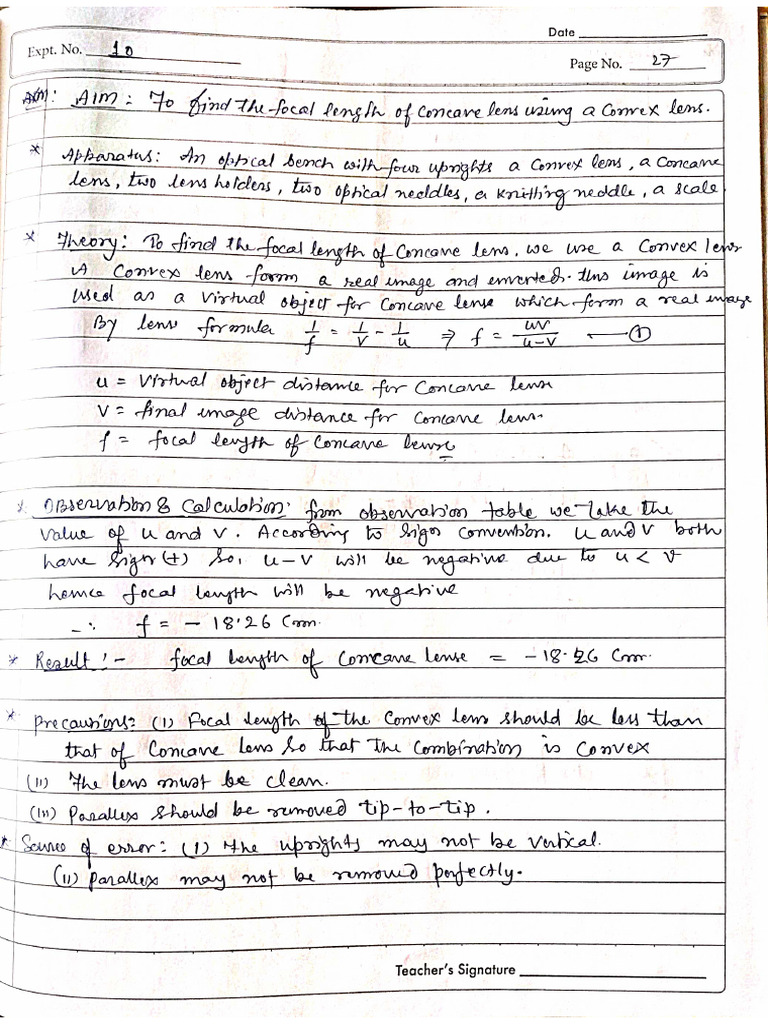 Date
Expt. No. 10
Page No. 27
Aim: AIM: To find the focal length of concave lens using a convex lens.
* Apparatus: An optical bench with four uprights a convex lens, a concave
lens, two lens holders, two optical neddles, a knitting neddle, a scale
* Theory: To find the focal length of concave lens, we use a convex lens
A convex lens form a real image and enverted. this image is
used as a virtual object for concave lense which form a real image
By lens formula 1/f = 1/v - 1/u ⇒ f = uv/u-v ←—①
u = virtual object distance for concave lense
v = final image distance for concave lens.
f = focal length of concave lense
* Observation & Calculation: from observation table we take the
value of u and v. According to sign convention. u and v both
have sign (+) so, u-v will be negative due to u < v
hence focal length will be negative
∴ f = - 18.26 Cm.
* Result :- focal length of concave lense = -18.26 Cm.
* Precautions: (I) Focal length of the convex lens should be less than
that of concave lens so that the combination is convex
(II) The lens must be clean.
(III) Parallex should be removed tip-to-tip.
* Source of error: (I) The uprights may not be vertical.
(II) parallex may not be removed perfectly.
Teacher's Signature